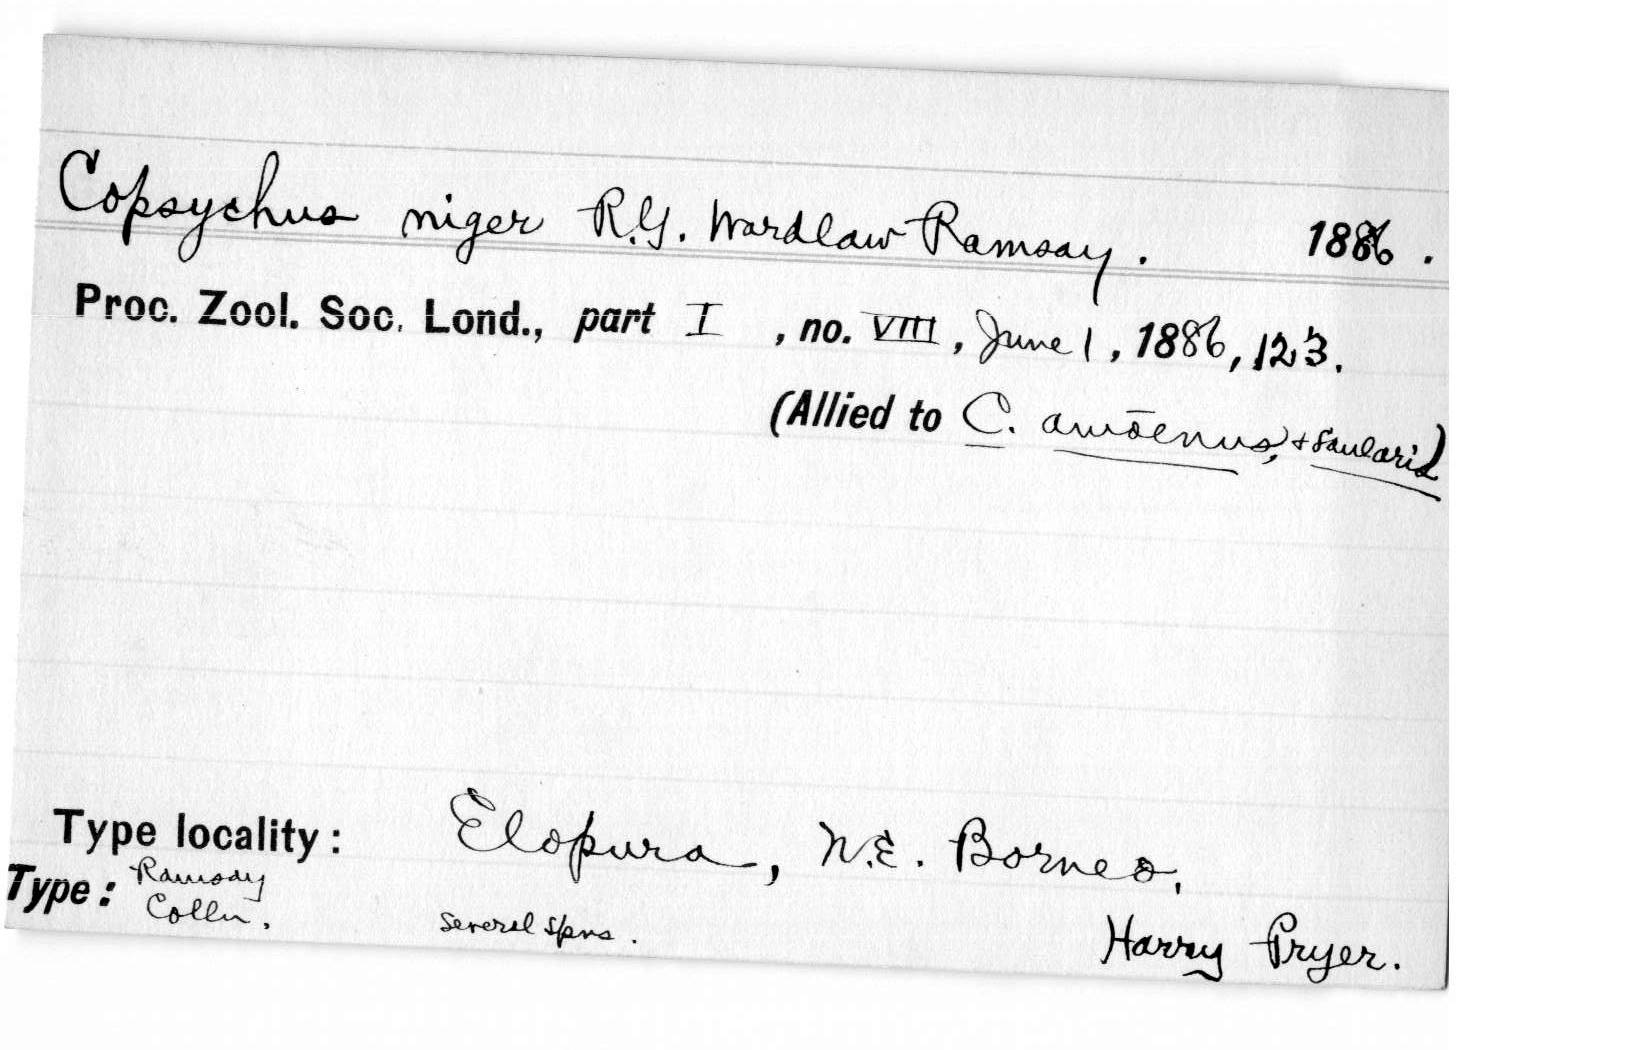 Copsychus niger R.G. Wardlaw-Ramsay. 1886.
Proc. Zool. Soc. Lond., part I, no. VIII, June 1, 1886, 123.
(Allied to C. amoenus, + saularis)
Type locality: Elopura, N.E. Borneo,
Type: Ramsay
Colln. several spns. Harry Pryer.